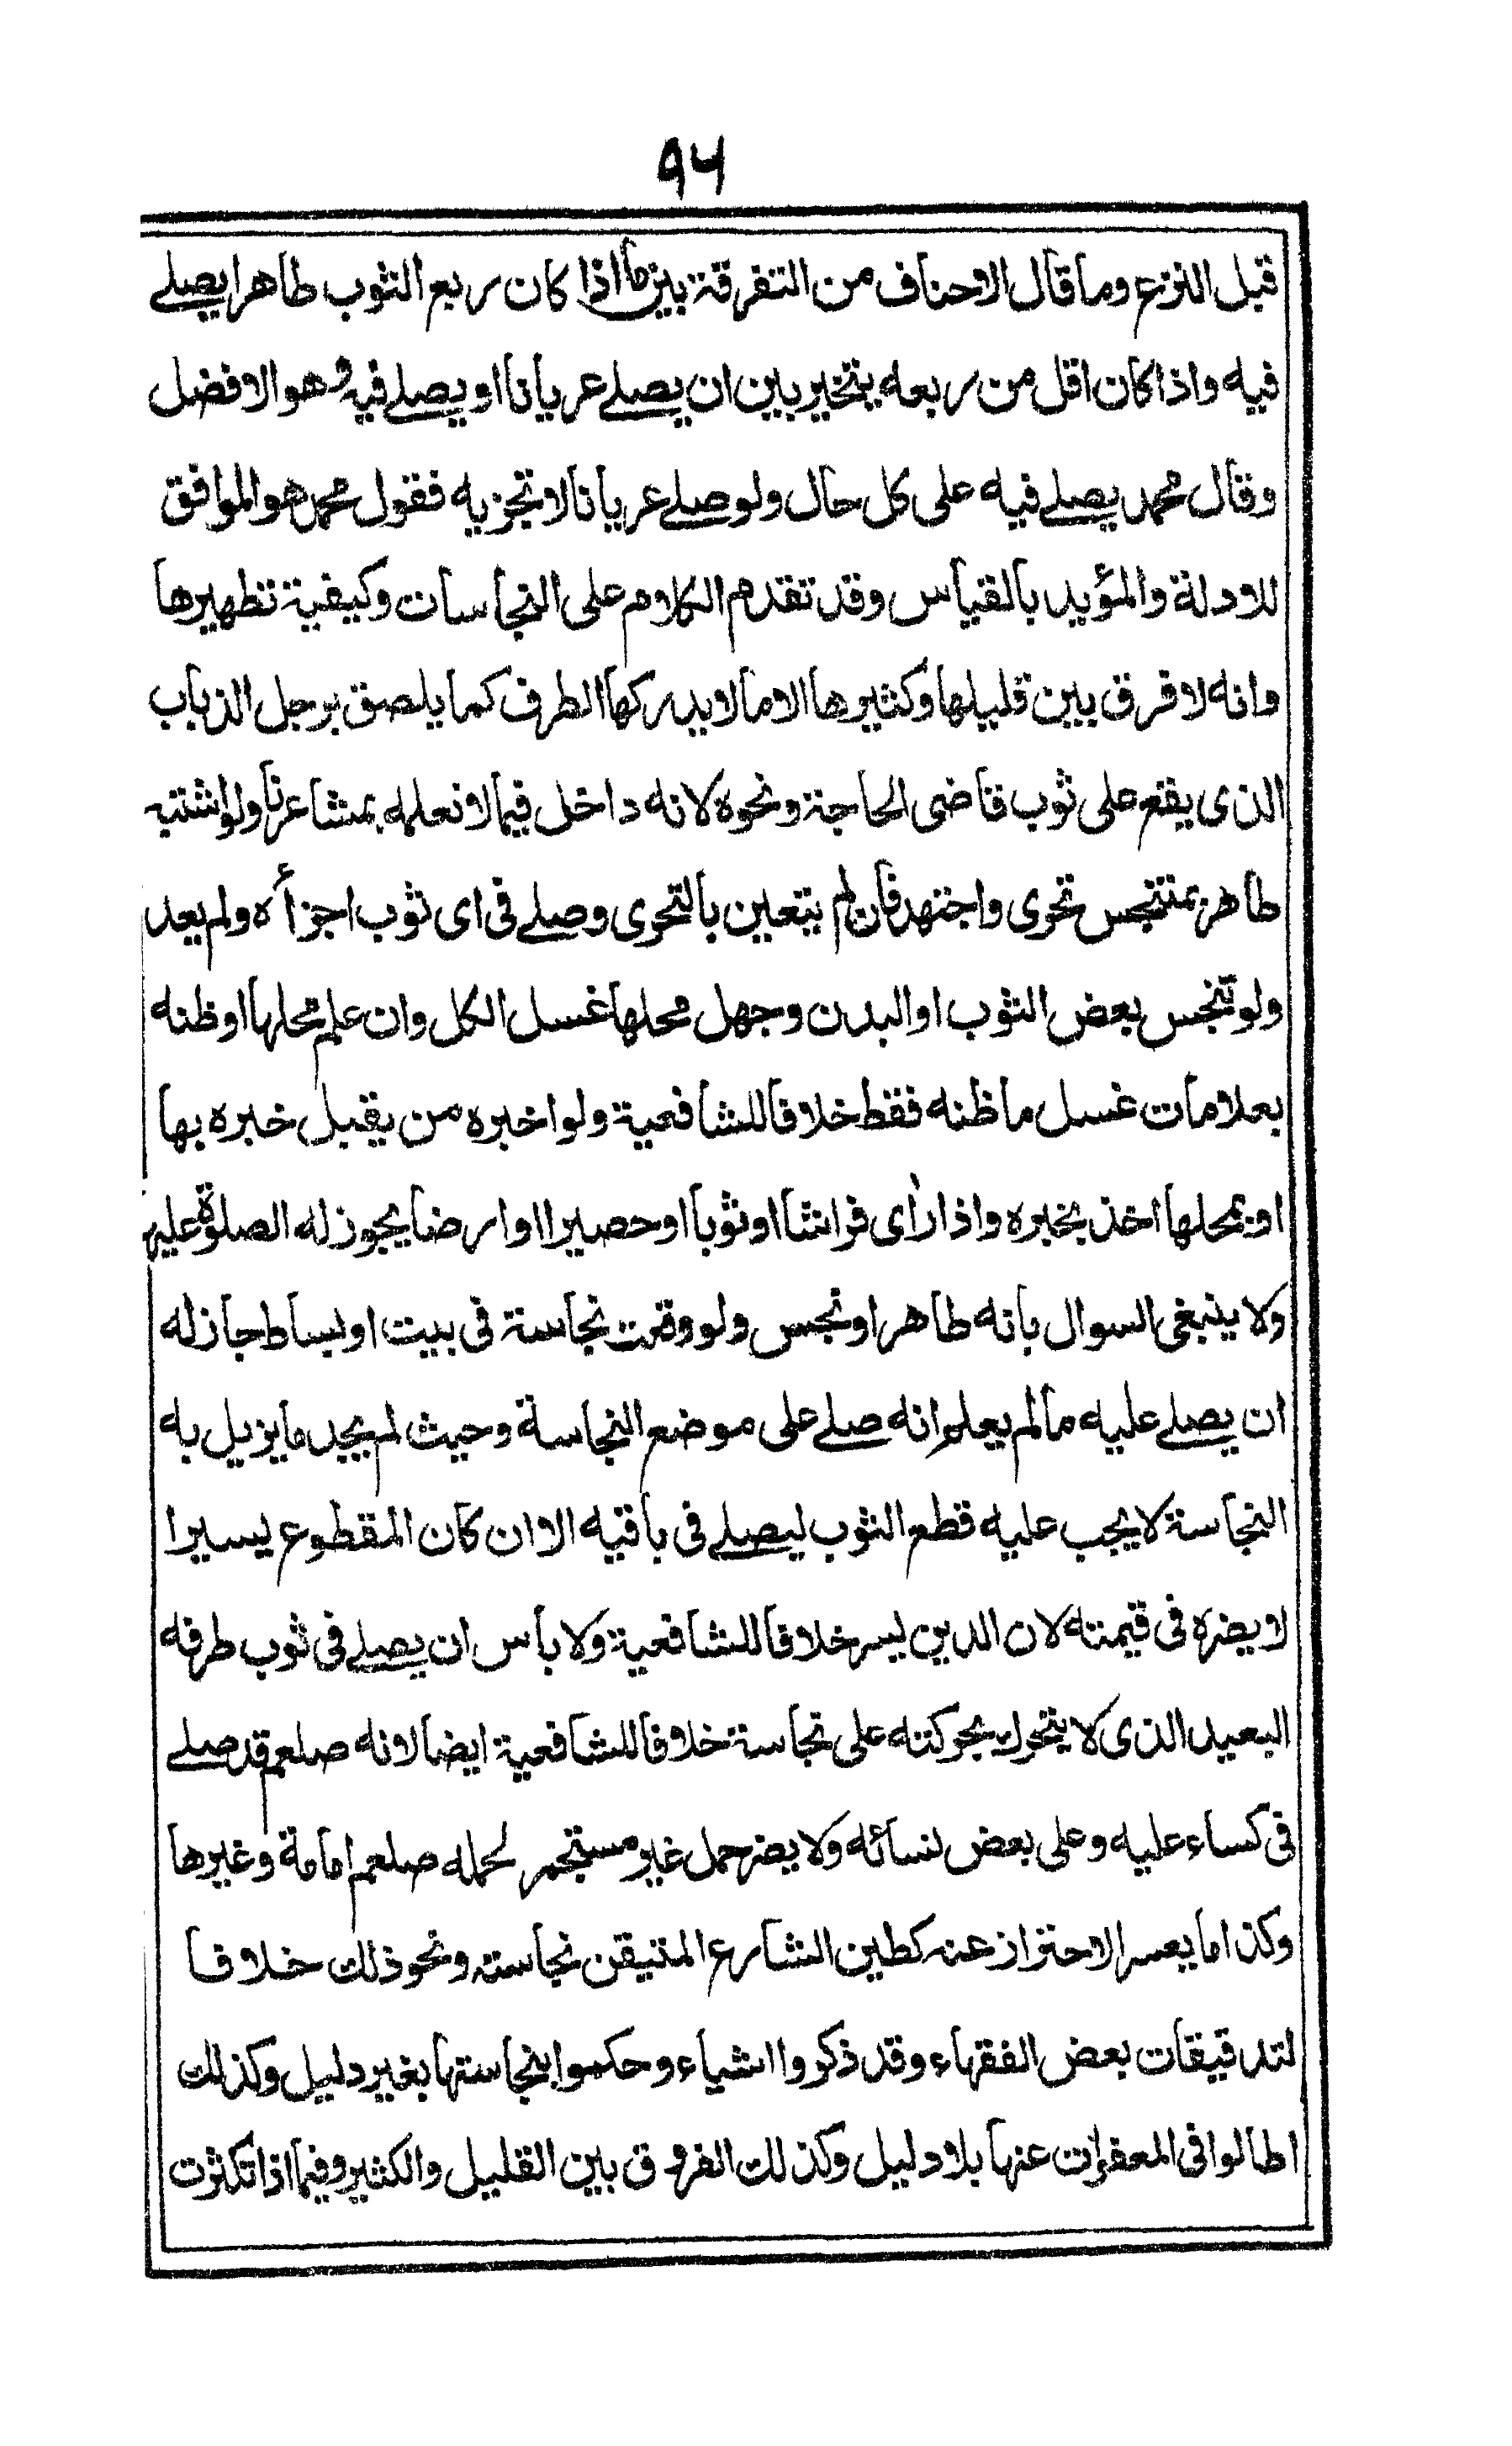 ٩٦
قبل النزع وما قال الاحناف من التفرقة بين ما اذا كان ربع الثوب طاهرا يصلے
فيه واذا كان اقل من ربعه يتخير بين ان يصلے عريانا او يصلے فيه وهو الافضل
وقال محمد يصلے فيه على كل حال ولو صلے عريانا لا تجزيه فقول محمد هو الموافق
للادلة والمؤيد بالقياس وقد تقدم الكلام على النجاسات وكيفية تطهيرها
وانه لا فرق بين قليلها وكثيرها الا ما لا يدركها الطرف كما يلصق برجل الذباب
الذى يقع على ثوب قاضى الحاجة ونحوه لانه داخل فيما لا نعلمه بمشاعرنا ولو اشتبه
طاهر بمتنجس تحرى واجتهد فان لم يتعين بالتحرى وصلے فى اى ثوب اجزأه ولم يعد
ولو تنجس بعض الثوب او البدن وجهل محلها غسل الكل وان علم محلها او ظنه
بعلامات غسل ما ظنه فقط خلافا للشافعية ولو اخبره من يقبل خبره بها
او بمحلها اخذ بخبره واذا رأى فراشا او ثوبا او حصيرا او ارضا يجوز له الصلوة عليه
ولا ينبغى السوال بانه طاهر او نجس ولو وقعت نجاسة فى بيت او بساط جاز له
ان يصلے عليه ما لم يعلم انه صلے على موضع النجاسة وحيث لم يجد ما يزيل به
النجاسة لا يجب عليه قطع الثوب ليصلے فى باقيه الا ان كان المقطوع يسيرا
لا يضره فى قيمته لان الدين يسر خلافا للشافعية ولا بأس ان يصلے فى ثوب طرفه
البعيد الذى لا يتحرك بحركته على نجاسة خلافا للشافعية ايضا لانه صلعم قد صلے
فى كساء عليه وعلى بعض نسائه ولا يضر حمل غير مستجمر لحمله صلعم امامة وغيرها
وكذا ما يعسر الاحتراز عنه كطين الشارع المتيقن نجاسته ونحو ذلك خلافا
لتدقيقات بعض الفقهاء وقد ذكروا اشياء وحكموا بنجاستها بغير دليل وكذلك
اطالوا فى المعفوات عنها بلا دليل وكذلك الفروق بين القليل والكثير وفيما اذا تكثرت